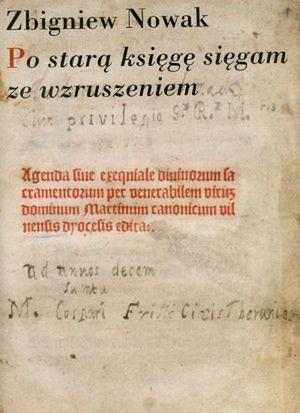 Zbigniew Nowak
Po starą księgę sięgam
ze wzruszeniem
Cum privilegio S. R. M.
Agenda siue exequiale diuinorum sa
cramentorum per venerabilem viruz
dominum Martinum canonicum vil
nensis dyocesis edita:.
ad annos decem
M.